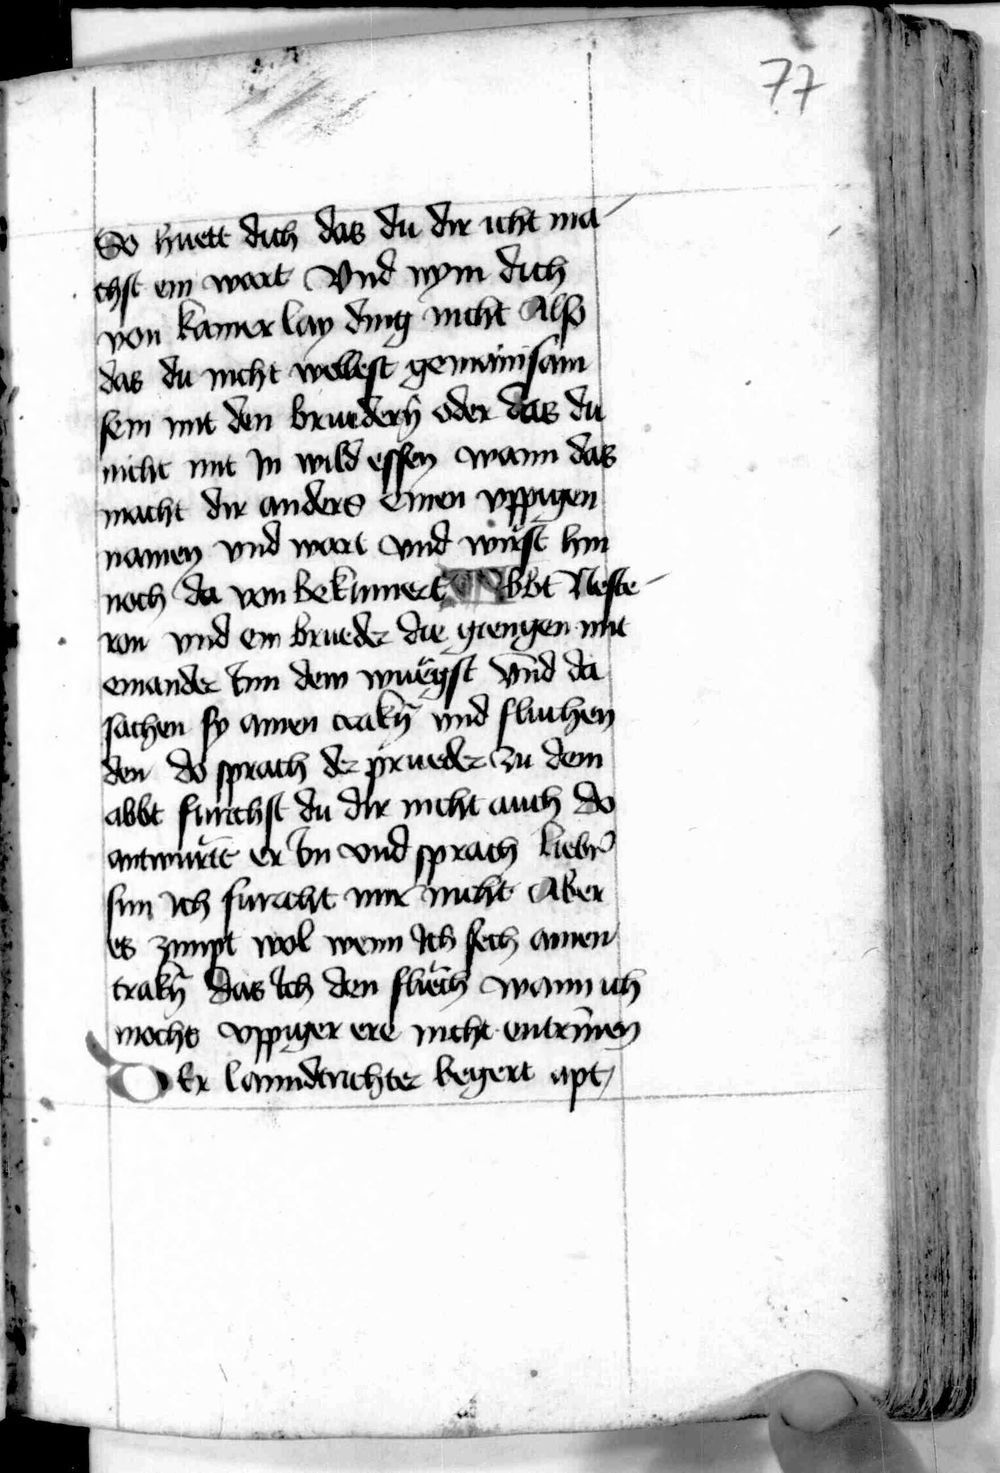 77
So huett dich das du dir icht ma
chst ein wort Vnd nym dich
von kainer lay ding nicht Also
das du nicht wellest gemainsam
sein mit den bruedern̄ oder das du
nicht mit In wild essen wann das
macht dir anders einen vppigen
namen vnd wort vnd wirst hin
noch da von bekümert Abbt Neste
ron vnd ein brueder die giengen mit
einander Inn dem wuegst Vnd da
sachen sy ainen trakn̄ vnd fluhen
den do sprach der prueder zu dem
abbt furchst du dir nicht auch do
antwurtt er In vnd sprach Lieber
sun Ich furcht mir nicht Aber
es zimpt wol wenn Ich sech ainen
trakn̄ das Ich den fluech wann ich
mocht vppiger ere nicht entrinnen
DEr lanndtrichter begert apt